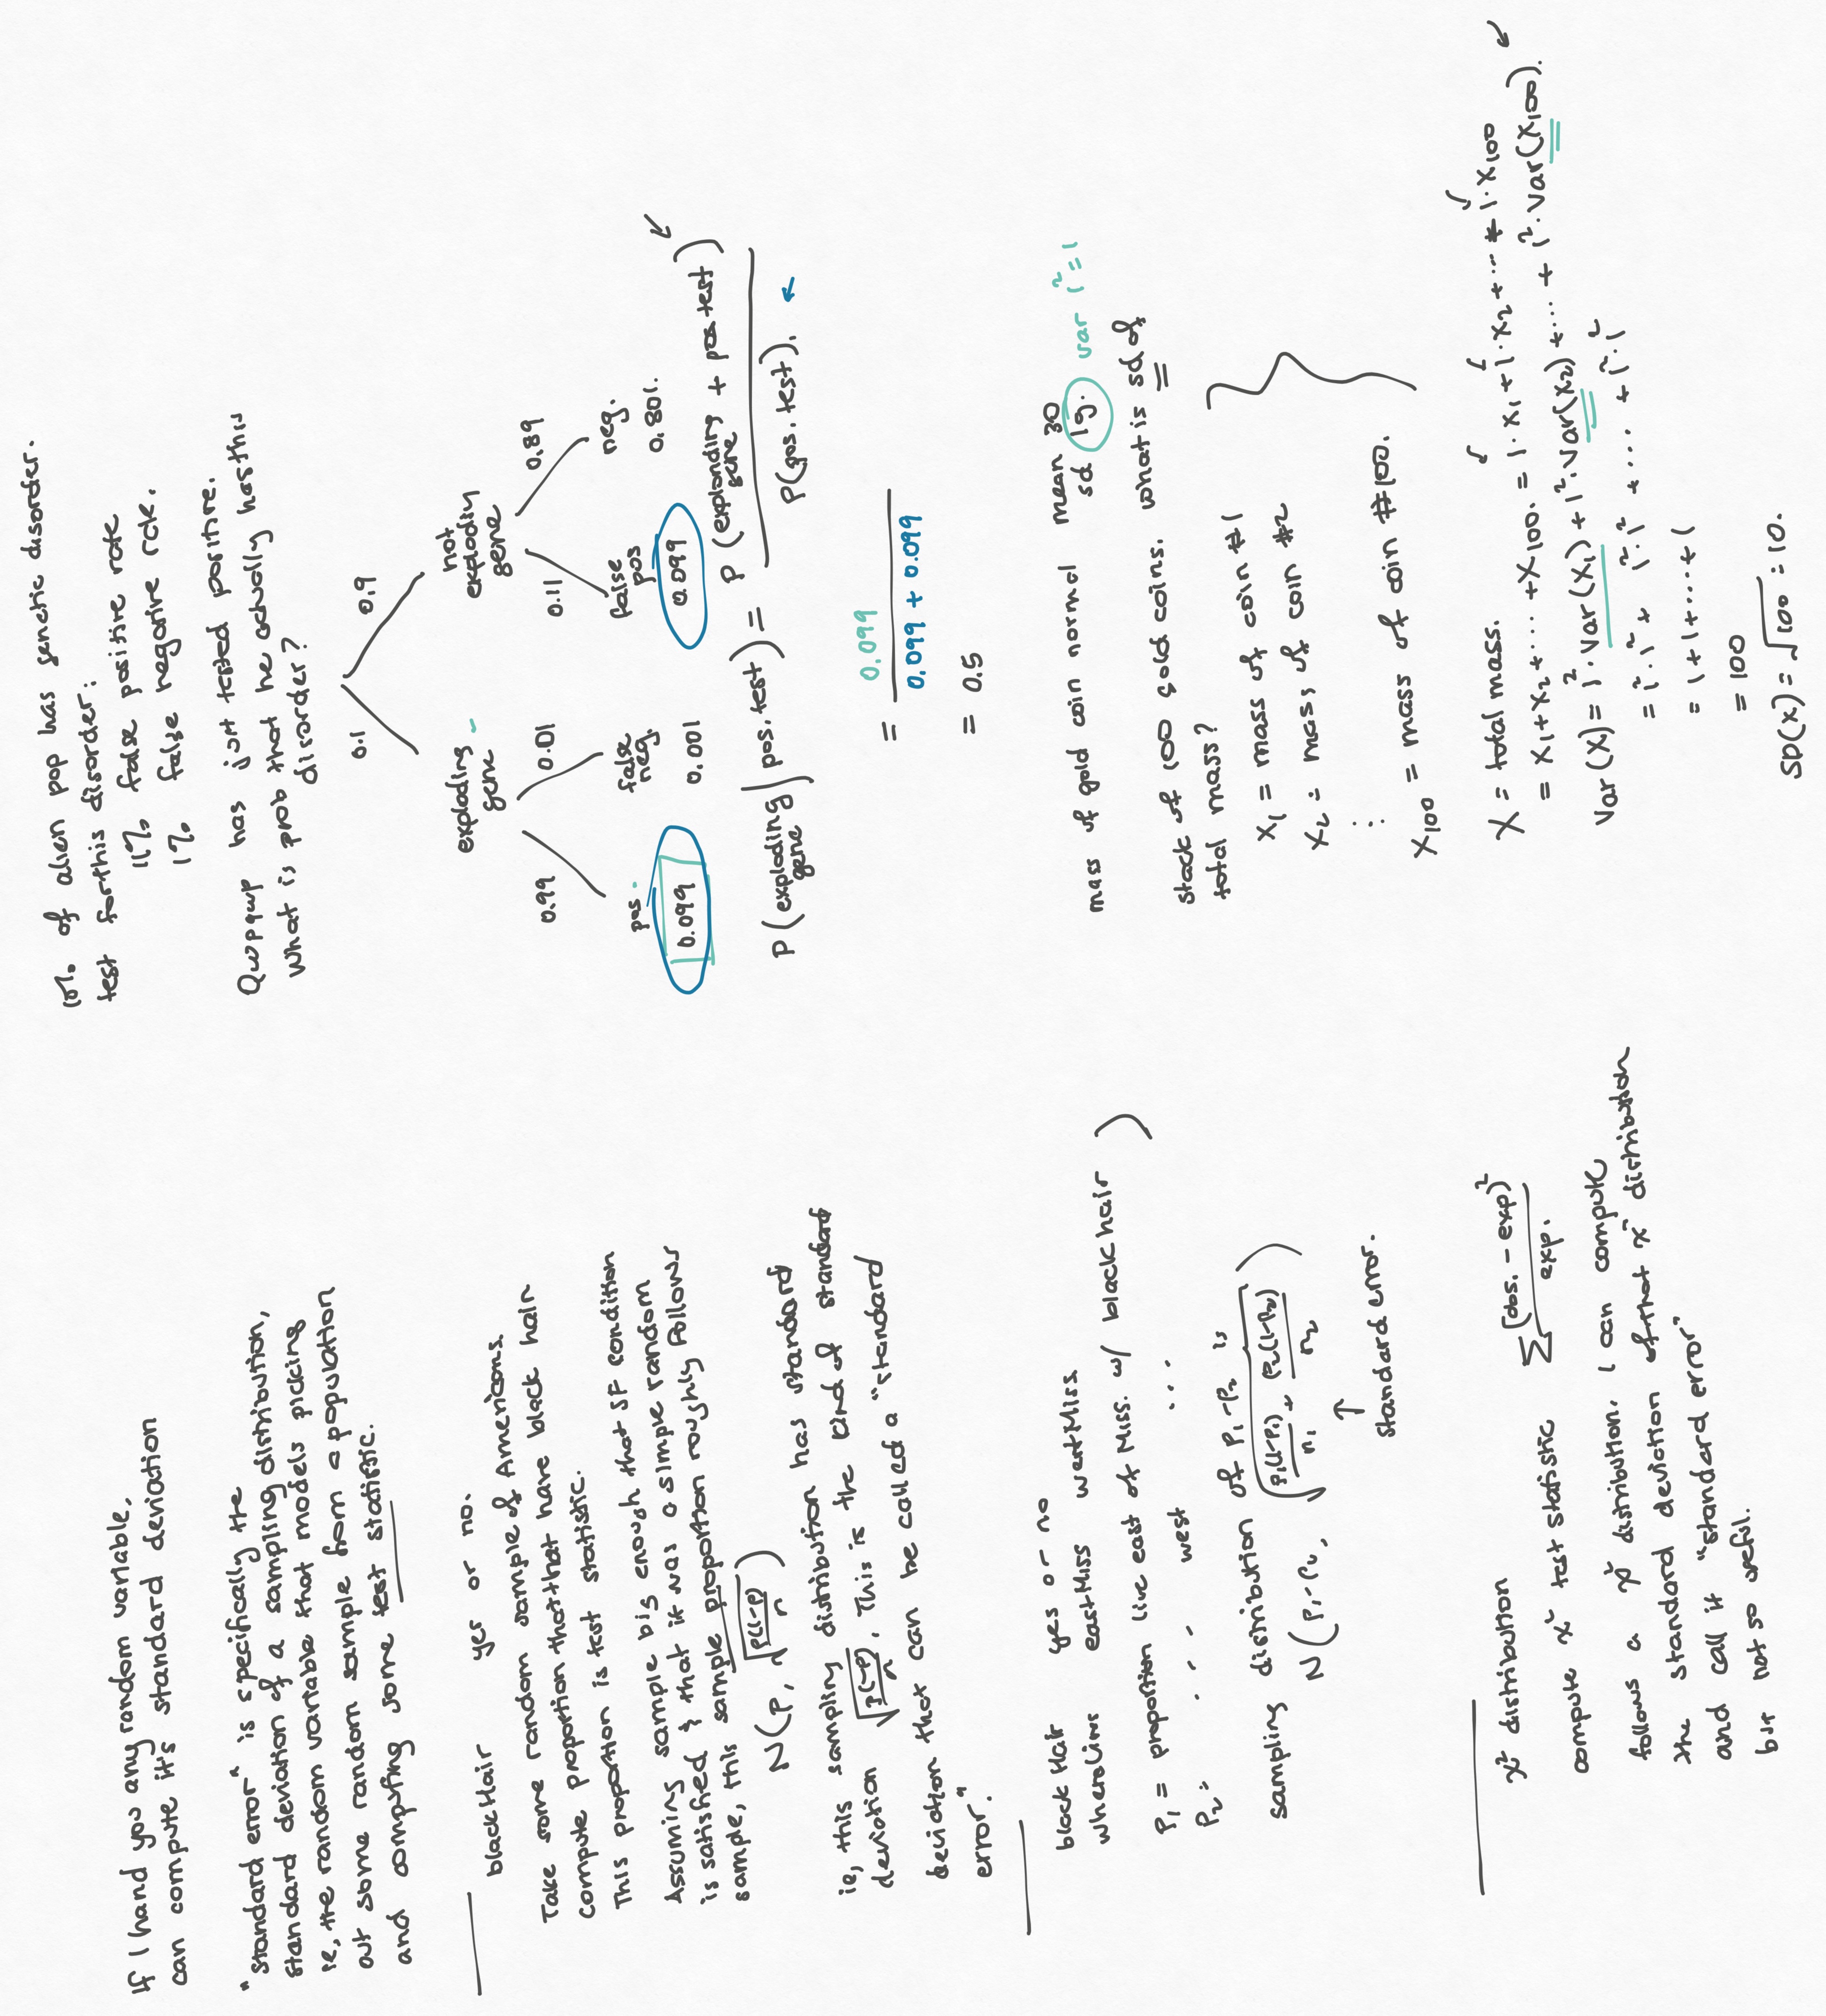 If I hand you any random variable,
can compute it's standard deviation
"standard error" is specifically the
standard deviation of a sampling distribution,
ie, the random variable that models picking
out some random sample from a population
and computing some test statistic.
blackHair yes or no.
Take some random sample of Americans.
compute proportion that that have black hair
This proportion is test statistic.
Assuming sample big enough that SF condition
is satisfied & that it was a simple random
sample, this sample proportion roughly follows
N(p, √(p(1-p)/n))
ie, this sampling distribution has standard
deviation √(p(1-p)/n). This is the kind of standard
deviation that can be called a "standard
error."
black Hair yes or no
whereLives eastMiss westMiss
P₁ = proportion live east of Miss. w/ black hair )
P₂ = ... west ...
sampling distribution of P₁-P₂ is
N(P₁-P₂, √(P₁(1-P₁)/n₁ + P₂(1-P₂)/n₂))
↑
standard error.
χ² distribution
compute χ² test statistic Σ (obs. - exp)²/exp.
follows a χ² distribution. I can compute
the standard deviation of that χ² distribution
and call it "standard error"
but not so useful.
10% of alien pop has genetic disorder.
test for this disorder:
11% false positive rate
1% false negative rate.
Qwpqwp has just tested positive.
What is prob that he actually has this
disorder?
0.1 0.9
exploding gene not exploding gene
0.99 0.01 0.11 0.89
pos false neg. false pos neg.
0.099 0.001 0.099 0.801.
P(exploding gene | pos. test) = P(exploding gene + pos test) / P(pos. test).
= 0.099 / (0.099 + 0.099)
= 0.5
mass of gold coin normal mean 30
sd 1g. var 1² = 1
stack of 100 gold coins. what is sd of
total mass?
X₁ = mass of coin #1
X₂ = mass of coin #2
⋮
X₁₀₀ = mass of coin #100.
X = total mass.
= X₁+X₂+···+X₁₀₀. = 1·X₁+1·X₂+···+1·X₁₀₀
Var(X) = 1²·Var(X₁) + 1²·Var(X₂) +···+ 1²·Var(X₁₀₀).
= 1²·1² + 1²·1² + ··· + 1²·1²
= 1+1+···+1
= 100
SD(X) = √100 = 10.